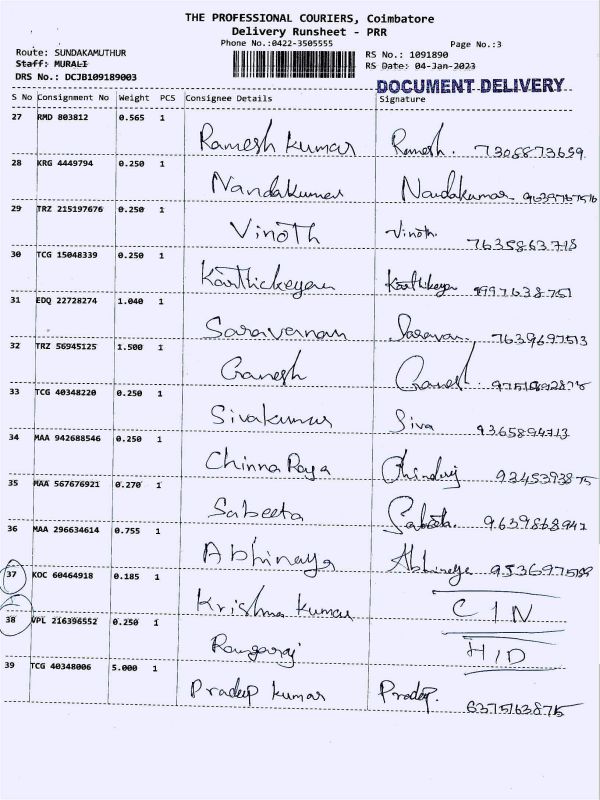 THE PROFESSIONAL COURIERS, Coimbatore
Delivery Runsheet - PRR
Phone No.:0422-3505555 Page No.:3
Route: SUNDAKAMUTHUR RS No.: 1091890
Staff: MURALI RS Date: 04-Jan-2023
DRS No.: DCJB109189003
DOCUMENT DELIVERY
S No Consignment No Weight PCS Consignee Details Signature
27 RMD 803812 0.565 1
Ramesh kumar Ramesh. 7305873659
28 KRG 4449794 0.250 1
Nandakumar Nandakumar
29 TRZ 215197676 0.250 1
Vinoth Vinoth. 7635863718
30 TCG 15048339 0.250 1
Karthickeyan Karthikeyan 9997638751
31 EDQ 22728274 1.040 1
Saravernan Saravan. 7639697513
32 TRZ 56945125 1.500 1
Ganesh Ganesh
33 TCG 40348220 0.250 1
Sivakumar Siva 9365894713
34 MAA 942688546 0.250 1
Chinna Raja 9345393875
35 MAA 567676921 0.270 1
Sabeeta Sabeeta. 9639868941
36 MAA 296634614 0.755 1
Abhinaya Abhinaya
37 KOC 60464918 0.185 1
Krishna kumar C/N
38 VPL 216396552 0.250 1
Rangaraj H/D
39 TCG 40348006 5.000 1
Pradeep kumar Pradeep. 6375163875